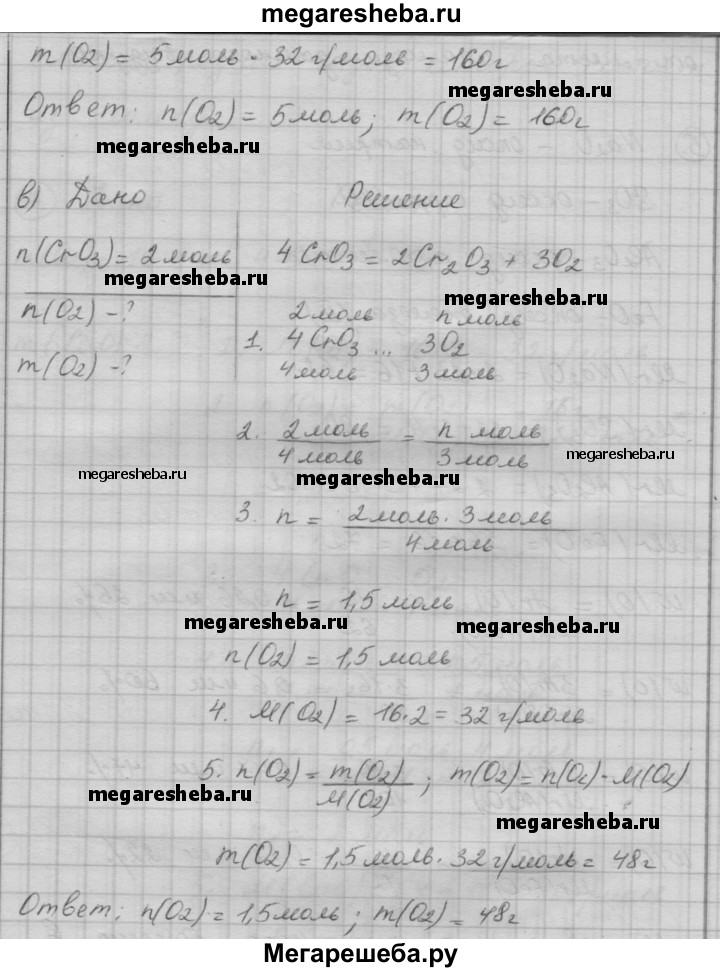 megaresheba.ru
m(O₂) = 5 моль · 32 г/моль = 160 г
megaresheba.ru
Ответ: n(O₂) = 5 моль; m(O₂) = 160 г
megaresheba.ru
в) Дано Решение
n(CrO₃) = 2 моль 4CrO₃ = 2Cr₂O₃ + 3O₂
megaresheba.ru
megaresheba.ru
n(O₂) - ? 2 моль n моль
1. 4CrO₃ ... 3O₂
m(O₂) - ? 4 моль 3 моль
2. 2 моль / 4 моль = n моль / 3 моль
megaresheba.ru
megaresheba.ru
3. n = 2 моль · 3 моль / 4 моль
n = 1,5 моль
megaresheba.ru
megaresheba.ru
n(O₂) = 1,5 моль
4. M(O₂) = 16·2 = 32 г/моль
5. n(O₂) = m(O₂) / M(O₂) ; m(O₂) = n(O₂) · M(O₂)
megaresheba.ru
megaresheba.ru
m(O₂) = 1,5 моль · 32 г/моль = 48 г
Ответ: n(O₂) = 1,5 моль; m(O₂) = 48 г
Мегарешеба.ру